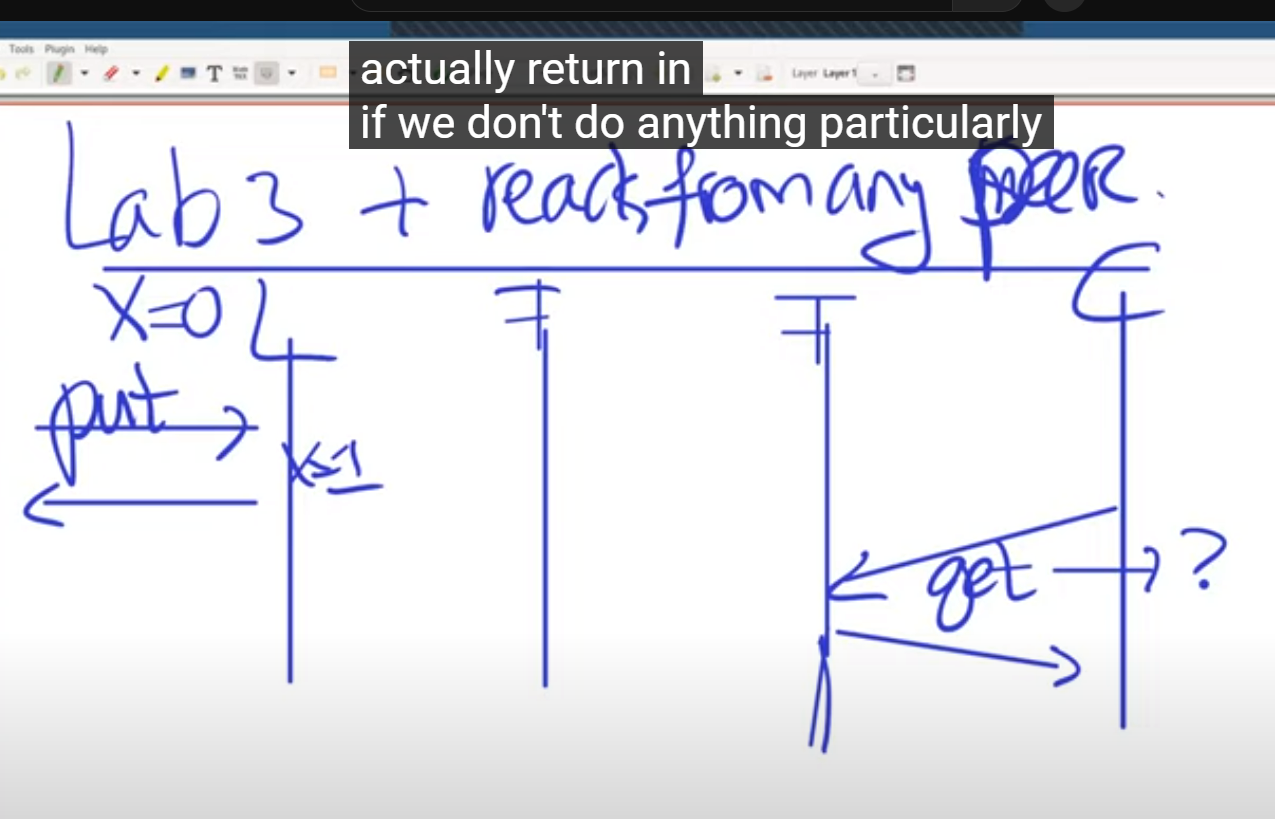 Tools Plugin Help
T Layer Layer 1
actually return in
if we don't do anything particularly
Lab 3 + reads from any peer.
X=0 L F F C
put
X=1
get → ?